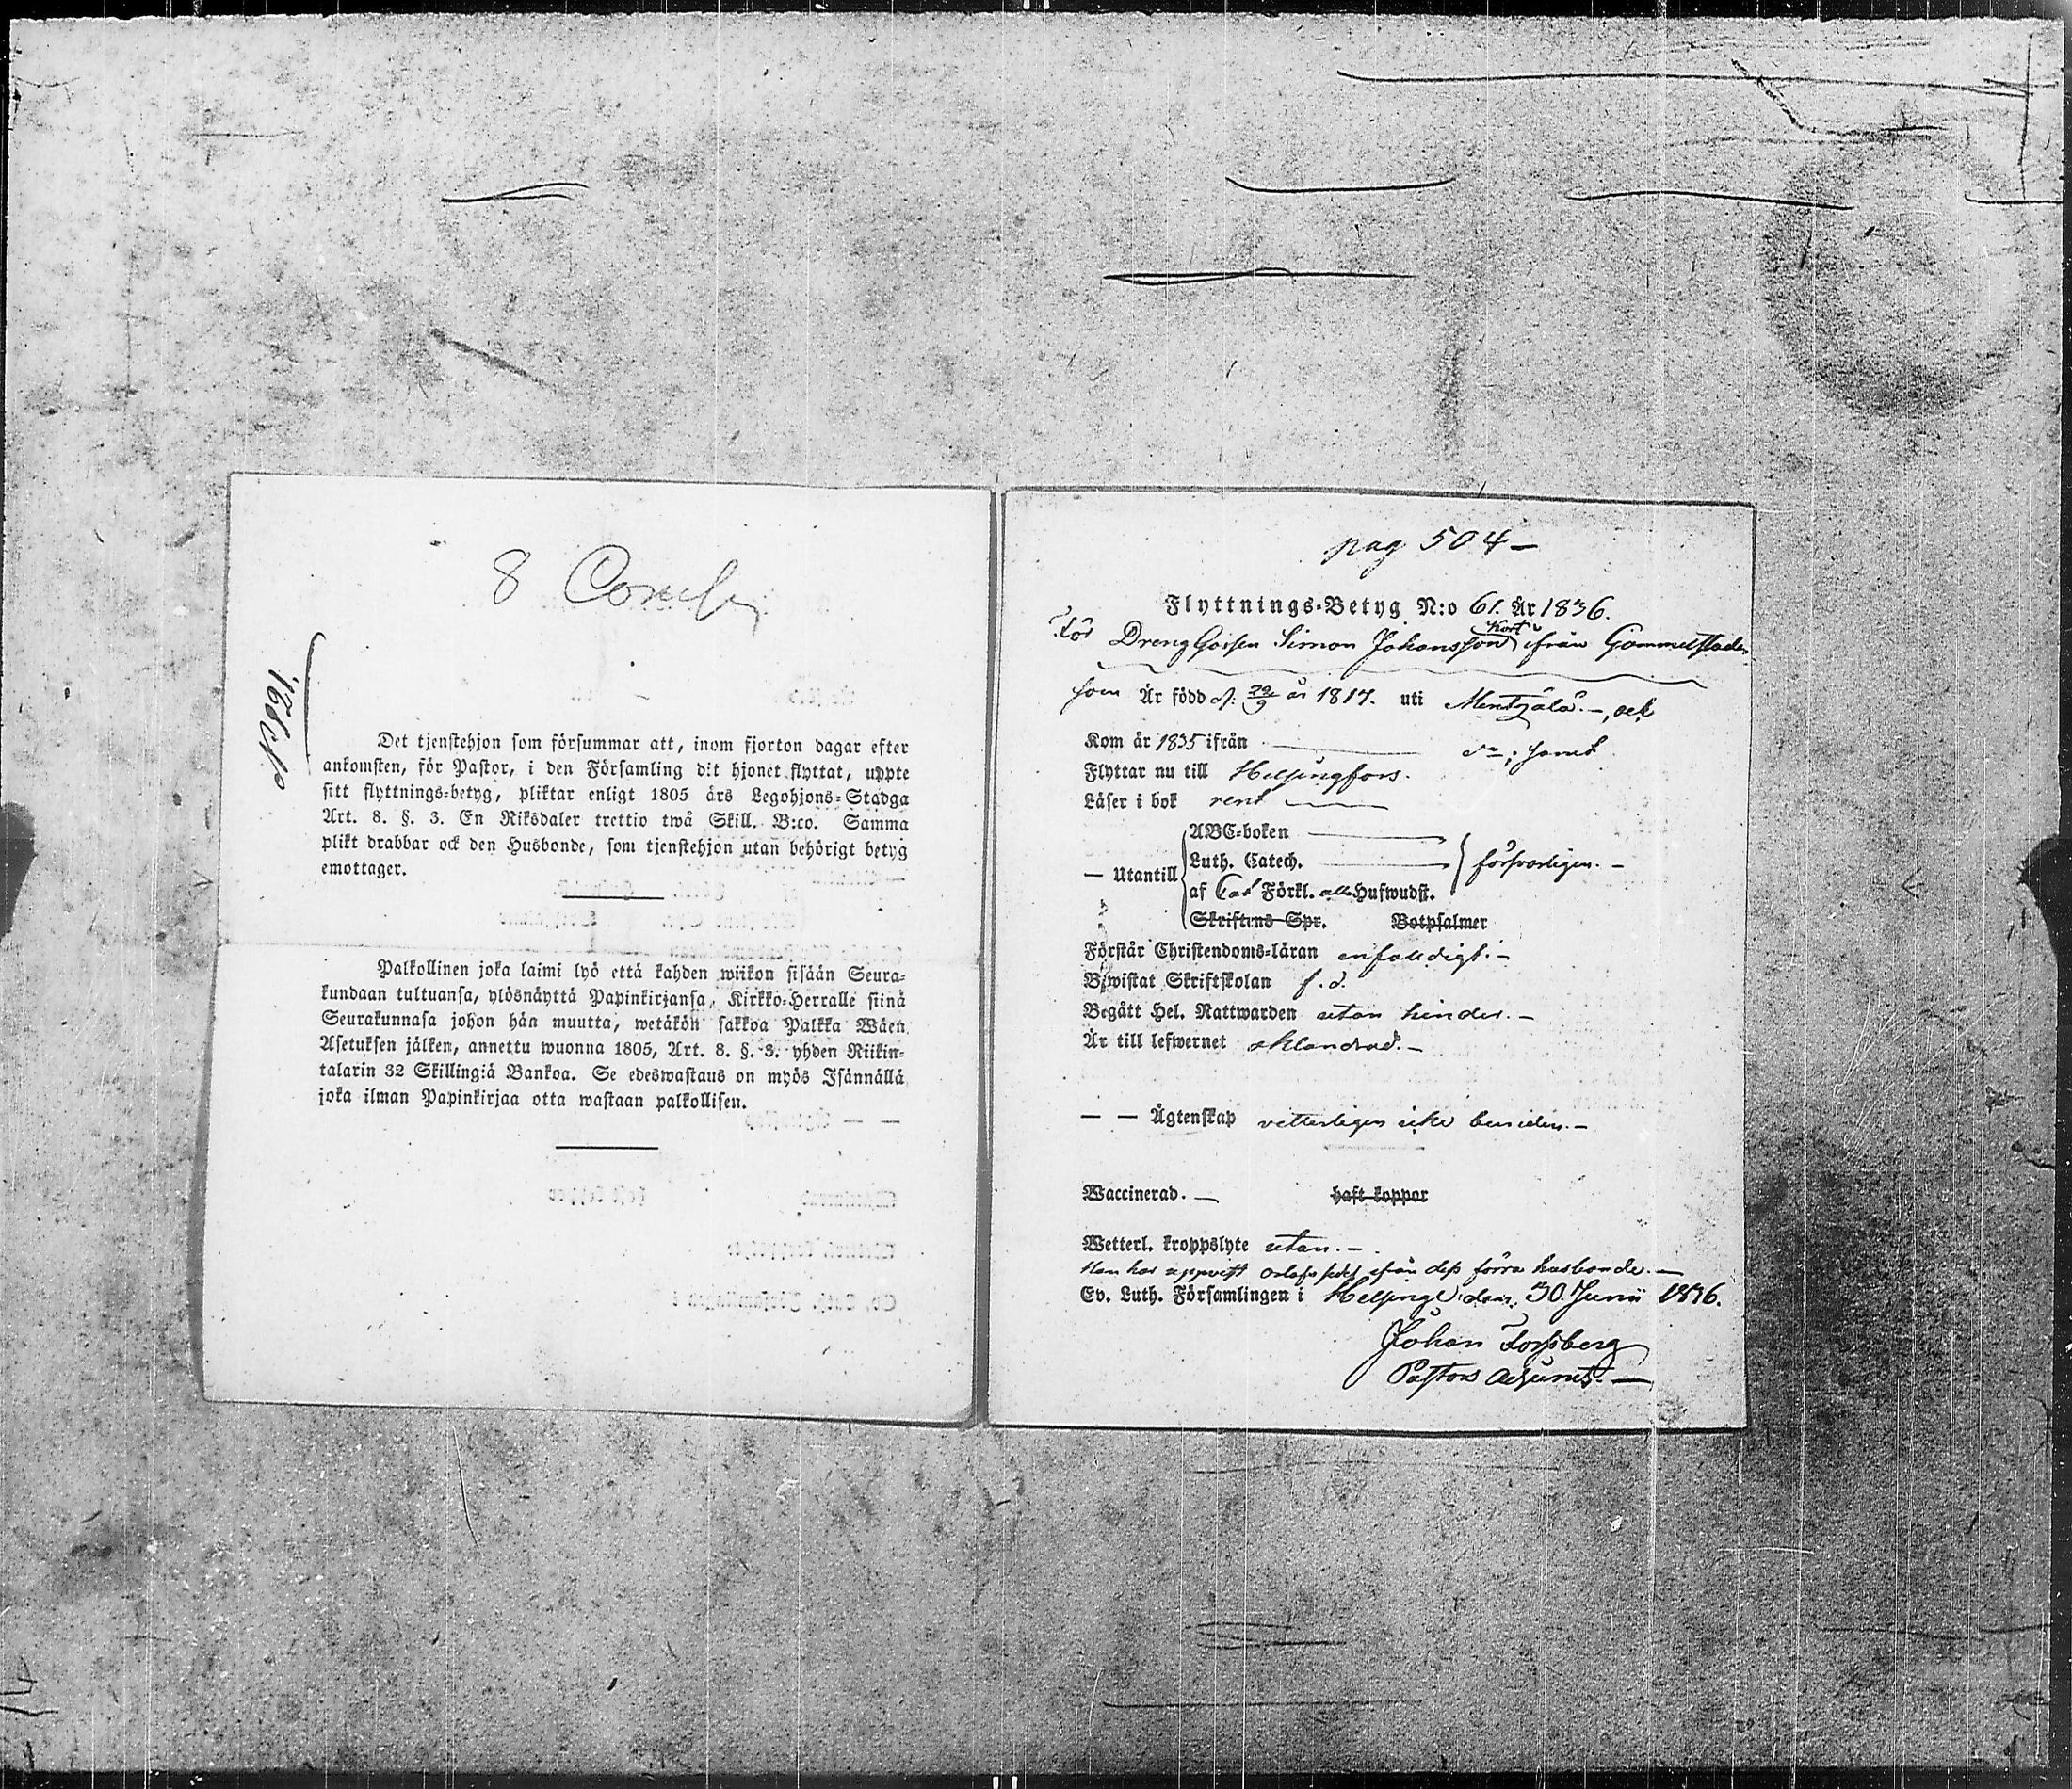 8
Det tjenstehjon som försummar att, inom fjorton dagar efter
ankomsten, för Pastor, i den Församling dit hjonet flyttat, uppte
sitt flyttnings-betyg, pliktar enligt 1805 års Legohjons-Stadga
Art. 8. §. 3. En Riksdaler trettio twå Skill. B:co. Samma
plikt drabbar ock den Husbonde, som tjenstehjon utan behörigt betyg
emottager.
Palkollinen joka laimi lyö että kahden wiikon sisään Seura-
kundaan tultuansa, ylösnäyttä Papinkirjansa, Kirkko-Herralle siinä
Seurakunnasa johon hän muutta, wetäkön sakkoa Palkka Wäen
Asetuksen jälken, annettu wuonna 1805, Art. 8. §. 3. yhden Riikin-
talarin 32 Skillingiä Bankoa. Se edeswastaus on myös Isännällä
joka ilman Papinkirjaa otta wastaan palkollisen.
pag 504 –
Flyttnings-Betyg N:o 61. År 1836.
För Dreng Gossen Simon Johansson ifrån Gammelstaden
som Är född d. 29/9 år 1817. uti – och
Kom år 1835 ifrån
Flyttar nu till Helsingfors.
Läser i bok rent
– Utantill
ABC-boken
Luth. Catech. försvarligen. –
af Förkl. alla Hufwudst.
Skriftens Spr. Botpsalmer
Förstår Christendoms-läran enfaldigt. –
Biwistat Skriftskolan
Begått Hel. Nattwarden utan hinder. –
Är till lefwernet oklandrad. –
– – Ägtenskap vetterligen icke bunden. –
Waccinerad. – haft koppor
Wetterl. kroppslyte utan. –
Han har uppvist orlofs sedel ifrån dess förra husbonde. –
Ev. Luth. Församlingen i Helsinge den 30 Junii 1836.
Johan Forssberg
Pastors Adjunct. –